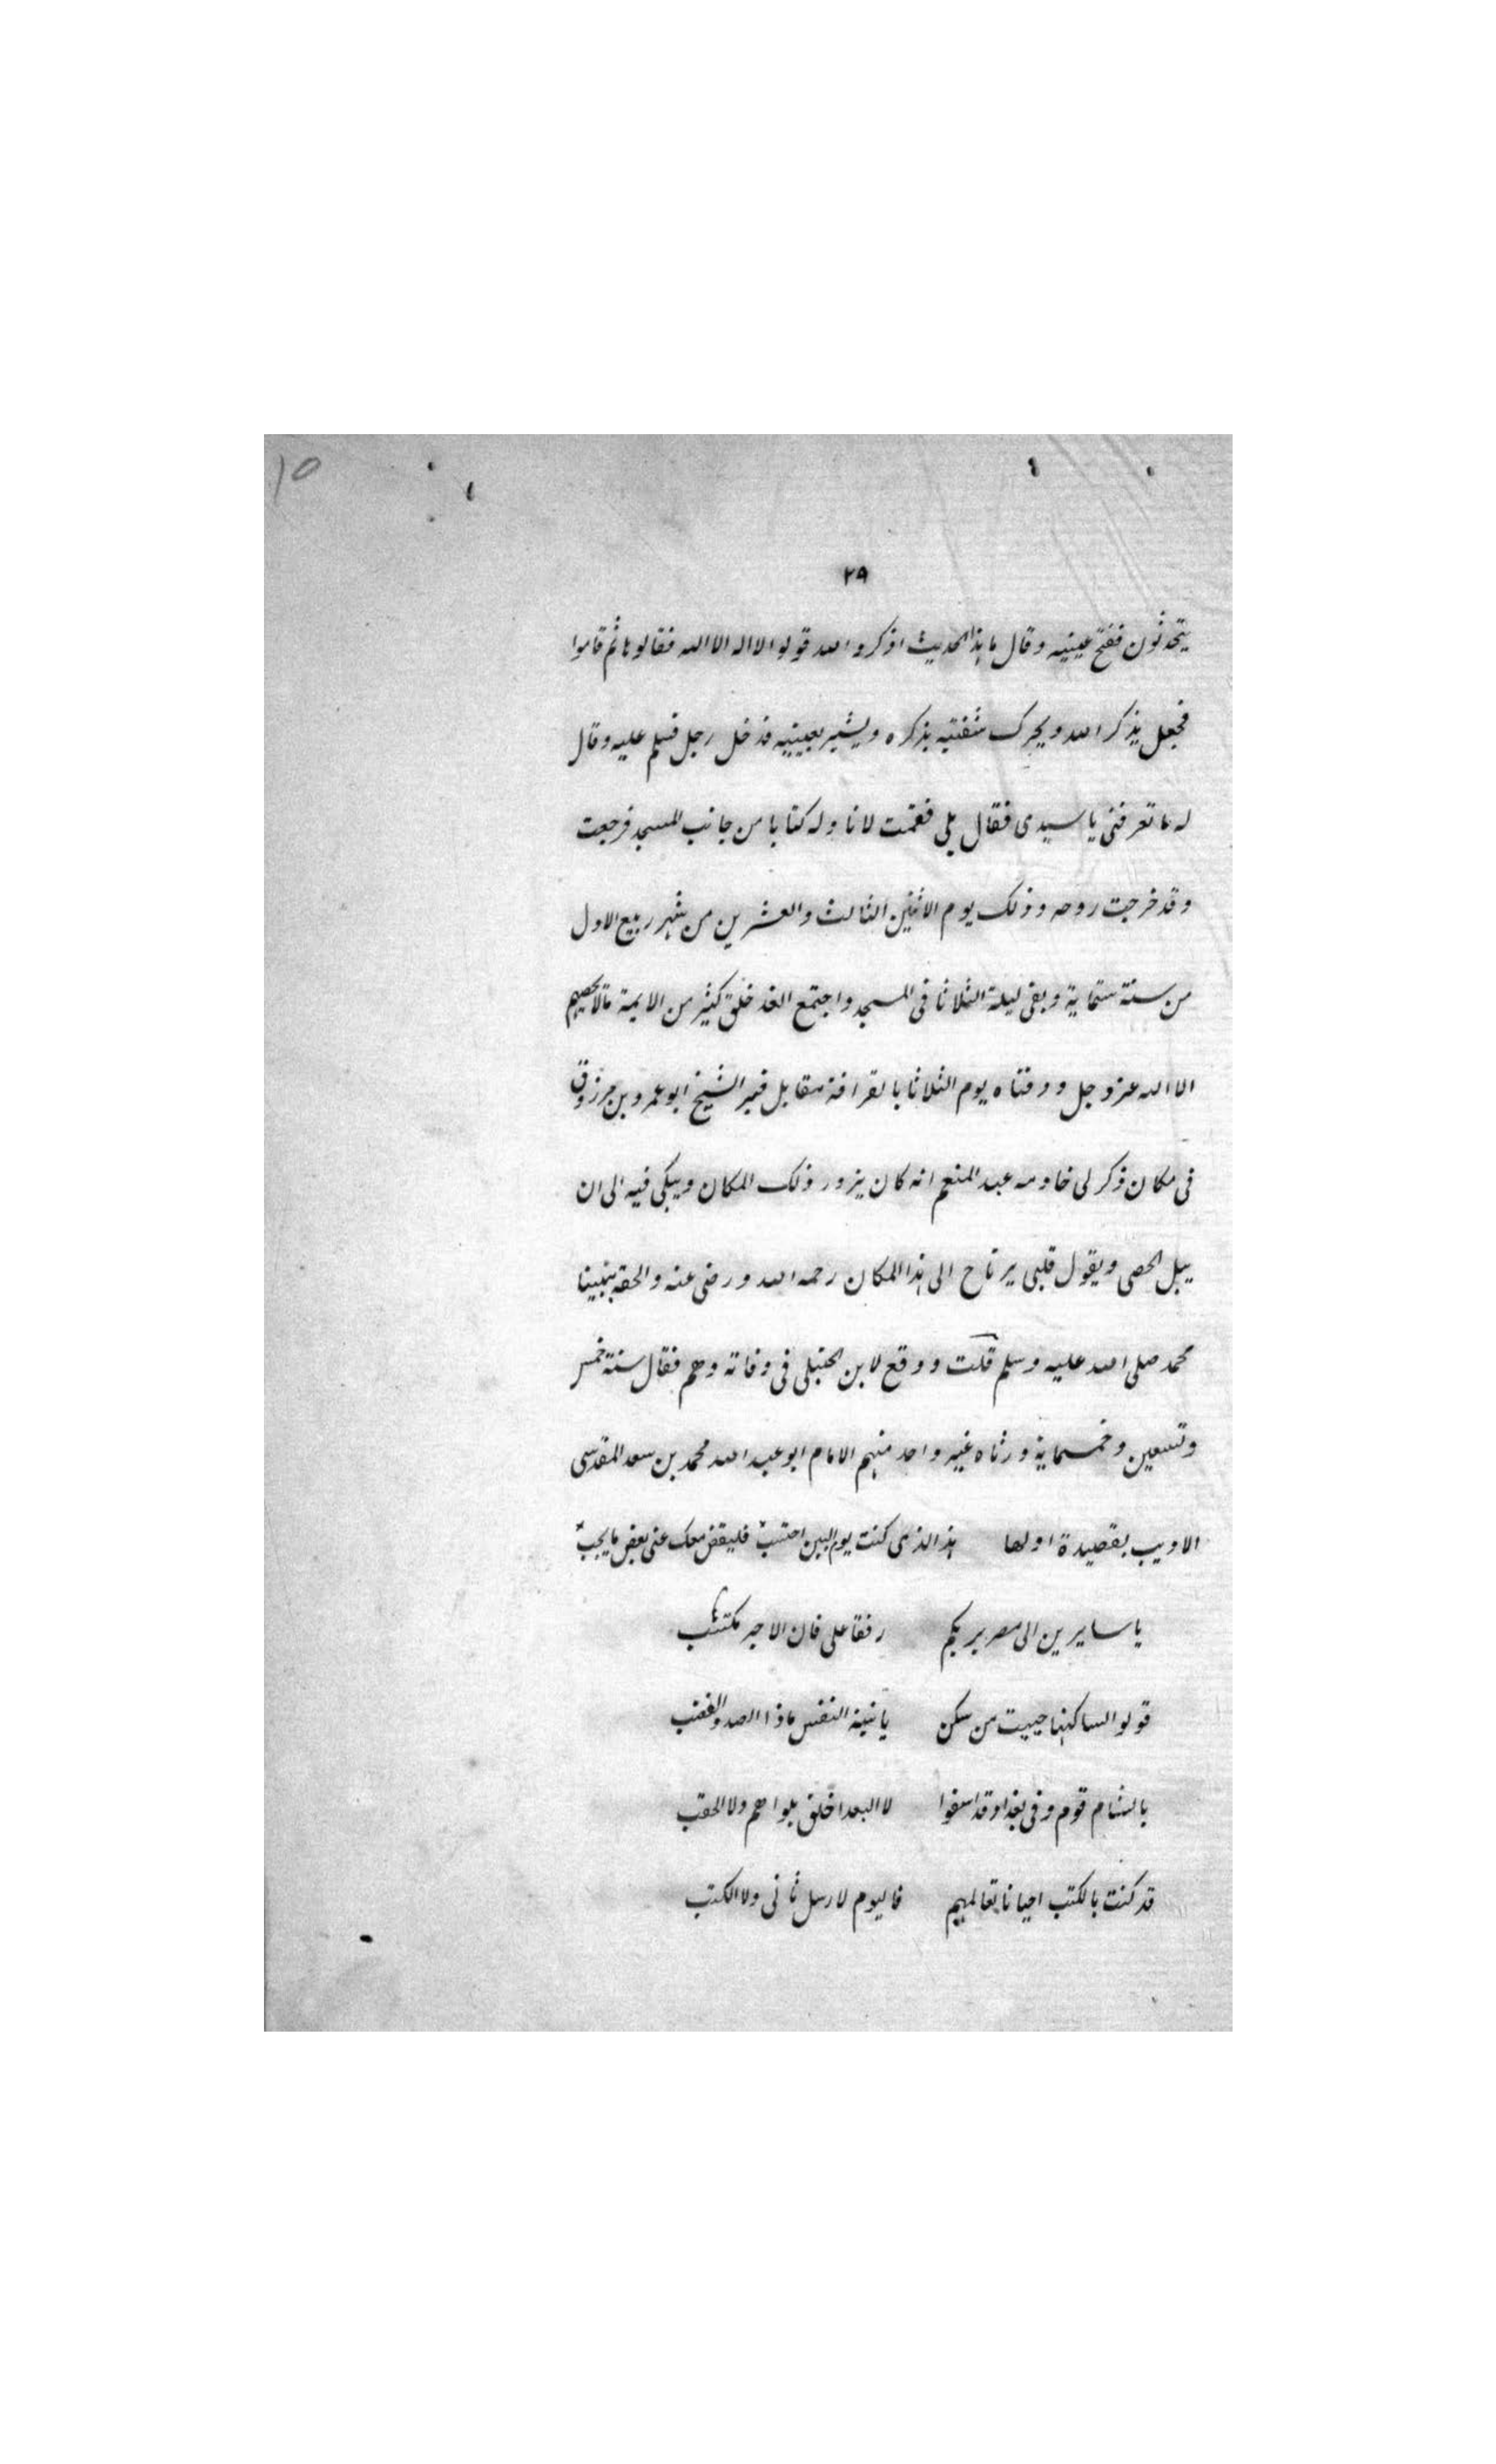 ١٥
٢٩
يتحدثون ففتح عينيه وقال ما هذا الحديث اذكروا الله قولوا لا اله الا الله فقالوها ثم قاموا
فجعل يذكر الله ويحرك شفتيه بذكره ويشير بعينيه فدخل رجل فسلم عليه وقال
له ما تعرفنى يا سيدى فقال بلى فقمت لاناوله كتابا من جانب المسجد فرجعت
وقد خرجت روحه وذلك يوم الاثنين الثالث والعشرين من شهر ربيع الاول
من سنة ستماية وبقى ليلة الثلاثا فى المسجد واجتمع الغد خلق كثير من الايمة مالا يحصيهم
الا الله عز وجل ودفناه يوم الثلاثا بالقرافة مقابل قبر الشيخ ابو عمرو بن مرزوق
فى مكان ذكر لى خادمه عبد المنعم انه كان يزور ذلك المكان ويبكى فيه الى ان
يبل الحصى ويقول قلبى يرتاح الى هذا المكان رحمه الله ورضى عنه والحقه بنبينا
محمد صلى الله عليه وسلم قلت ووقع لابن الحنبلى فى وفاته وهم فقال سنة خمس
وتسعين وخمسماية ورثاه غير واحد منهم الامام ابو عبد الله محمد بن سعد المقدسى
الاديب بقصيدة اولها هذا الذى كنت يوم البين احتسب فليقض معك عنى بعض ما يجب
يا سايرين الى مصر بربكم رفقا على فان الاجر مكتسب
قولوا لساكنها حييت من سكن يا نية النفس ماذا الصد والغضب
بالشام قوم وفى بغداد قد اسفوا لا البعد اخلق بلواهم ولا الحقب
قد كنت بالكتب احيانا تعالهم فاليوم لا رسل ثانى ولا الكتب